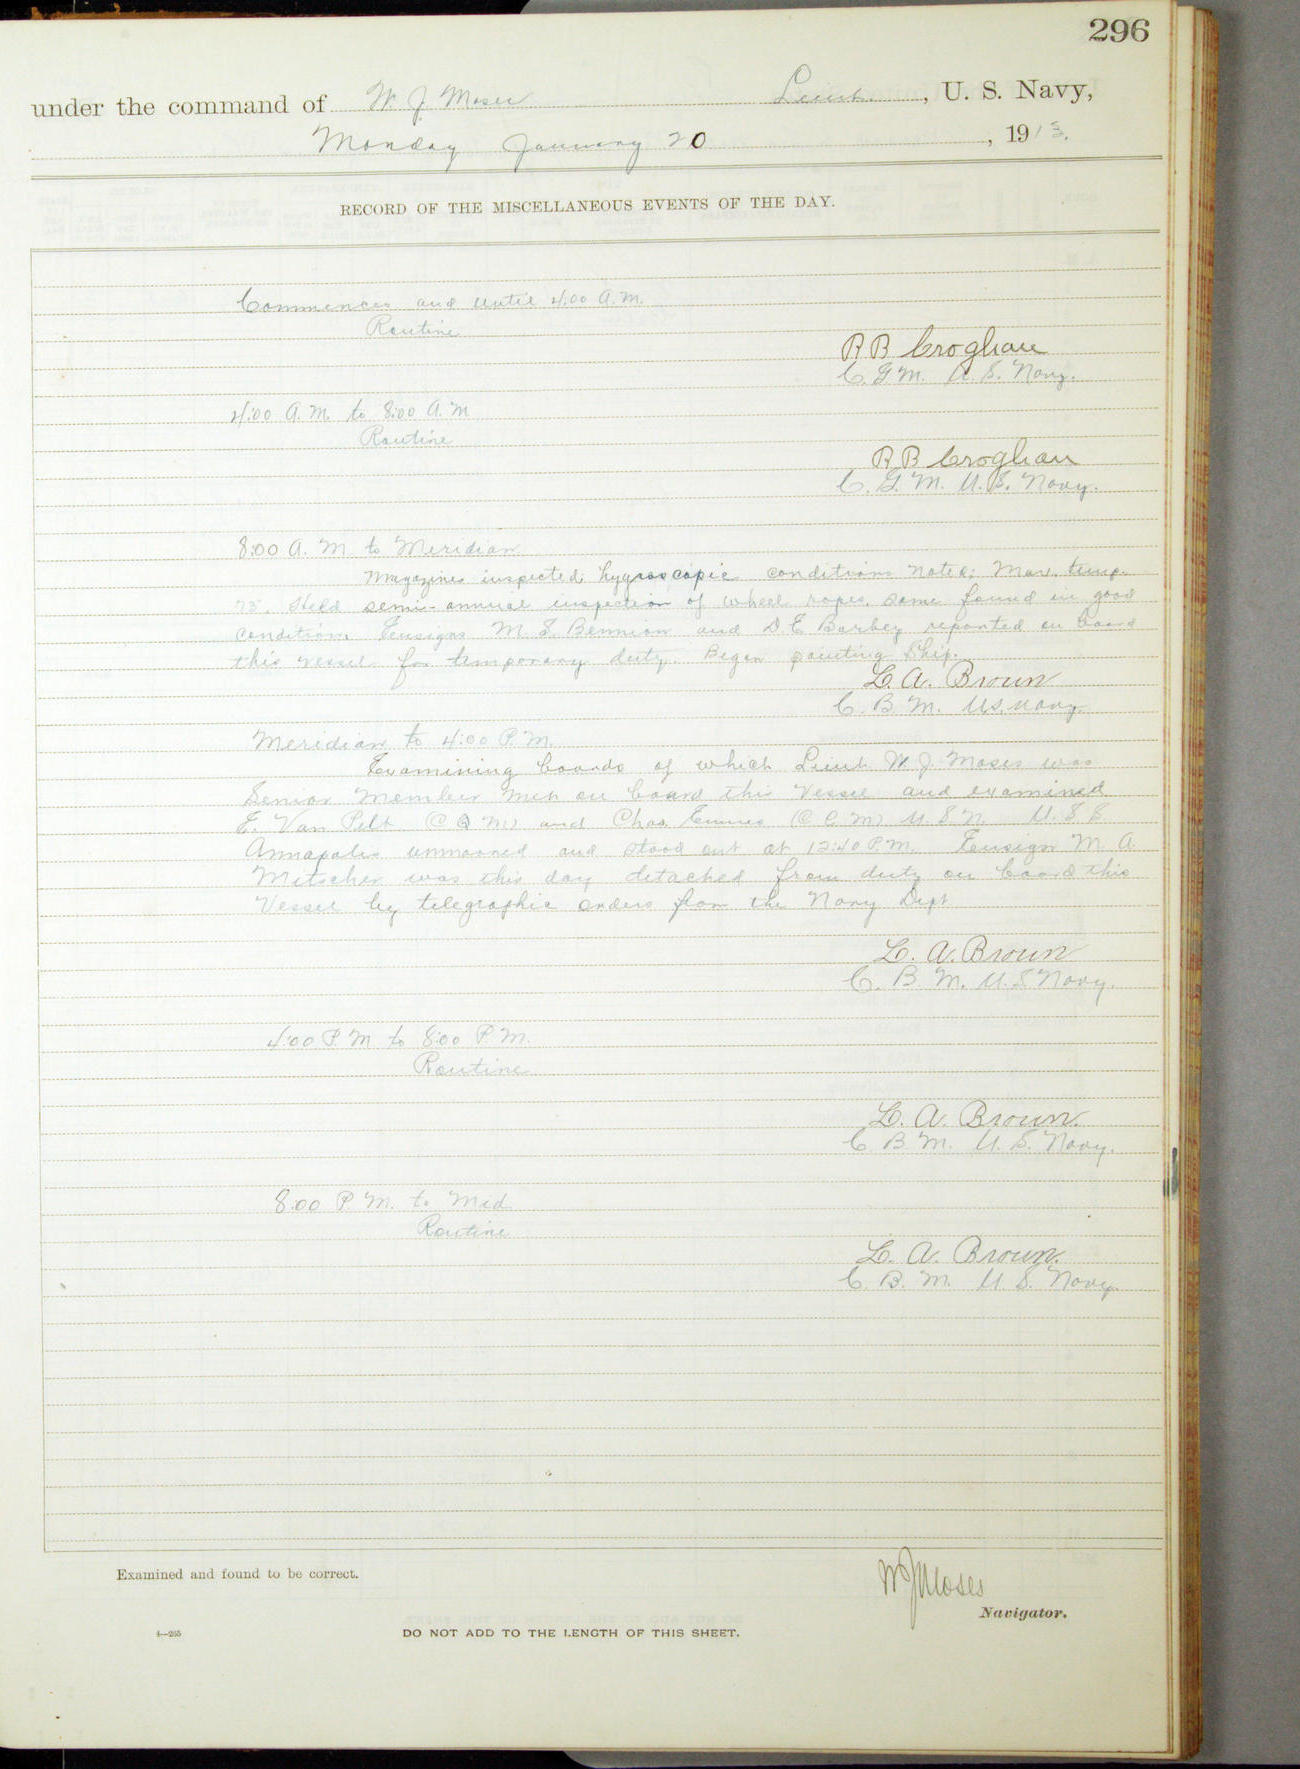 296
under the command of W. J. Moses Lieut. , U. S. Navy,
Monday January 20 , 1913.
RECORD OF THE MISCELLANEOUS EVENTS OF THE DAY.
Commences and until 4:00 A.M.
Routine
R B Croghan
C. G. M. U. S. Navy.
4:00 A.M. to 8:00 A.M
Routine
R B Croghan
C. G. M. U. S. Navy.
8:00 A. M. to Meridian
Magazines inspected, hygroscopic conditions noted; Max. temp.
75°. Held semi-annual inspection of wheel ropes, same found in good
condition. Ensigns M. S. Bennion and D. E. Barbey reported on board
this vessel for temporary duty. Began painting ship.
L. A. Broun
C. B. M. U.S. Navy.
Meridian to 4:00 P.M.
Examining boards of which Lieut W. J. Moses was
Senior Member met on board this vessel and examined
E. Van Pelt (C Q M) and Chas. (C C M) U. S. N. U. S. S.
Annapolis unmoored and stood out at 12:40 P.M. Ensign M. A.
Mitscher was this day detached from duty on board this
Vessel by telegraphic orders from the Navy Dept
L. A. Broun
C. B. M. U. S Navy.
4:00 P.M to 8:00 P.M.
Routine
L. A. Broun.
C B. M. U. S. Navy.
8:00 P. M. to Mid
Routine
L. A. Broun.
C. B. M. U. S. Navy
Examined and found to be correct.
W J Moses
Navigator.
4—265 DO NOT ADD TO THE LENGTH OF THIS SHEET.